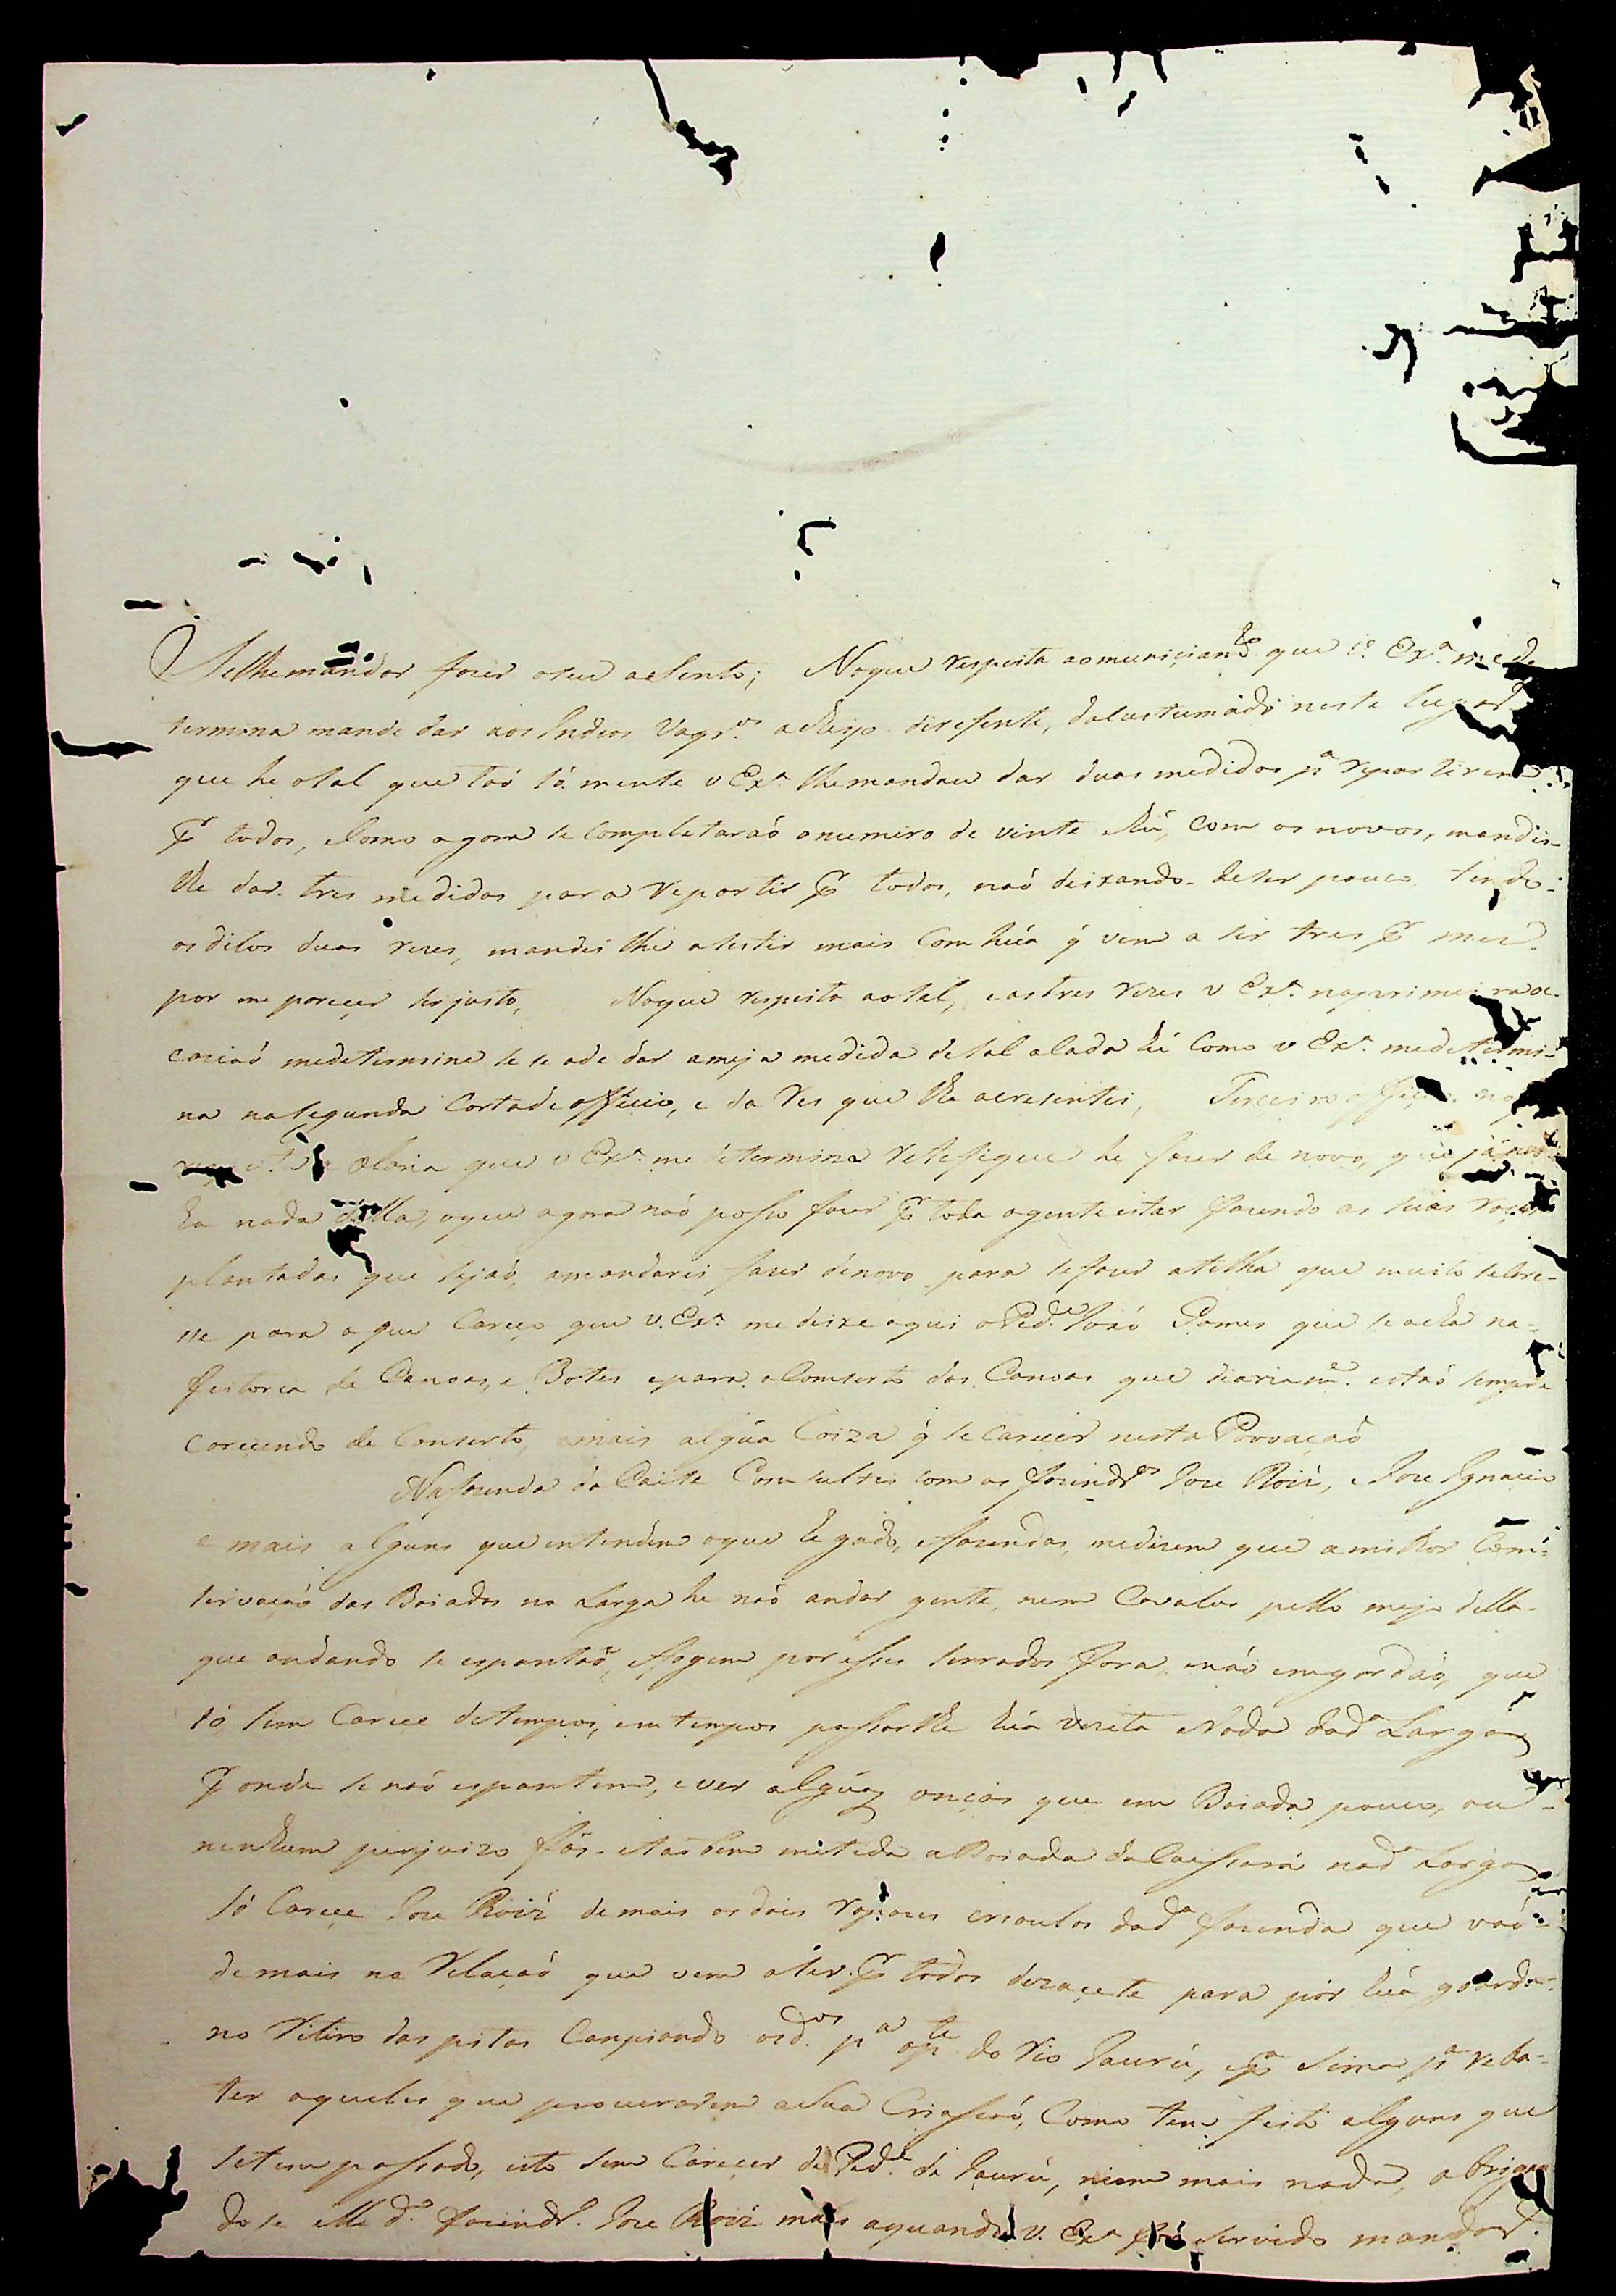 Selhemandar fazer oseu asento; Noque respeita aomuniçiam.to que V. Ex.a mede
termina mande dar aos Indios Vaqr.os direzente, docustumado neste lugar
que he osal que taó só mente V Ex.a lhemandou dar duas medidas p.a repartirem
todos, Como agora se Completaraó o numero de vinte hú, Com os novos, mandei
lhe dar tres medidas para repartir todos, naó deixando deser pouco, sendo
os ditos duas vezes, mandei lhe asestir mais Com húa q̃ vem a ser tres mez
por me pareçer ser justo, Noque respeita aosal, eastres vezes v Ex.a naprimeira oc
caziaó medetermine se se ade dar ameja medida desal acada hú Como v Ex.a medetermi
na nasegunda Carta de officio, e da Vez que lhe aprezentei, Terceiro officio
olaria que v Ex.a me determina Retefique he fazer de novo, que já
ha nada della, oque agora naó posso fazer toda agente estar fazendo as suas roças
plantadas que sejaó, amandarei fazer denovo para sefazer atelha que muito secare
se para o que Careço que v. Ex.a medeixe aqui oPed.e Joaó Gomes que se acha na
feitoria de Canoas, e Botes epara oComserto das Canoas que diariam.e estaó sempre
carecendo de Conserto, emais algúa Coiza q̃ se Carecer nesta Povoaçaó
Nafazenda da Caiss Comsultei com os fazendr.os Joze Roiz, e Joze Ignacio
e mais alguns que entendem oque he gado, efazendas, medizem que amilhor Com
servaçaó das Boiadas na Larga he naó andar gente, nem Cavalos pello mejo della
que andando se espantaó, efogem por esses serrados fora, enaó emgordaó, que
só sim Carece detempos, em tempos passarlhe húa vezita Roda dad.a Larga
onde se naó espantem, ever algúas onças que em Boiada pouco, ou
nenhum perjuizo fás. EstaóBem metida aBoiada daCaissara nad.a Larga
só Carece Joze Roiz demais osdois rapazes crioulos dad.a fazenda que vaó
demais na Relaçaó que vem aser todos dezaçete para pôr húa goarda
no Retiro das pitas Campiando osd.os p.a ap.te do Rio Jaurú, Sima p.a reba
ter aqueles que procurarem asua Criassaó, Como tem feito alguns que
setem passado, isto sem Careçer de Ped.e de Jaurú, nem mais nada, obrigan
do se elle d.o fazendr.o Joze Roiz mais aquando V. Ex.a for servido mandar